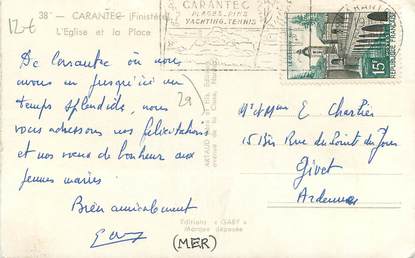 12-€
38 - CARANTEC (Finistère)
L'Eglise et la Place
CARANTEC
PLAGES.PINS
YACHTING.TENNIS
15F
De Carantec où nous
avons eu jusqu'ici un
temps splendide, nous
vous adressons nos félicitations
et nos vœux de bonheur aux
jeunes mariés.
Bien amicalement
(MER)
Editions « GABY »
Marque déposée
ARTAUD
E Chartier
15 Bis Rue du Point du Jour
Givet
Ardennes